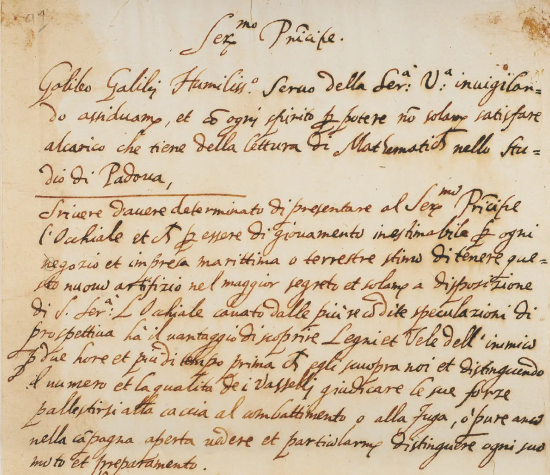 Ser.mo Prĩcipe.
Galileo Galilej Humiliss.o Servo della Ser.a V.a invigilan-
do assiduam.e, et cõ ogni spirito p̱ potere nõ solam.e satisfare
al carico che tiene della lettura di Mathematic.e nello Stu-
dio di Padova,
Scrivere d'avere determinato di presentare al Ser.mo Prĩcipe
l'Occhiale et p̱ essere di giovamento inestimabile p̱ ogni
negozio et impresa marittima o terrestre stimo di tenere que-
sto nuovo artifizio nel maggior segreto et solam.e a disposizione
di S. Ser.a L'Occhiale cavato dalle più recõdite speculazioni di
prospettiva ha il vantaggio di scoprire Legni et Vele dell'inimico
p̱ due hore et più di tempo prima egli scuopra noi et distinguendo
il numero et la qualità de i Vasselli giudicare le sue forze
pallestirsi alla caccia al combattimento o alla fuga, o pure anco
nella cãpagna aperta vedere et particolarm.e distinguere ogni suo
moto et preparamento.